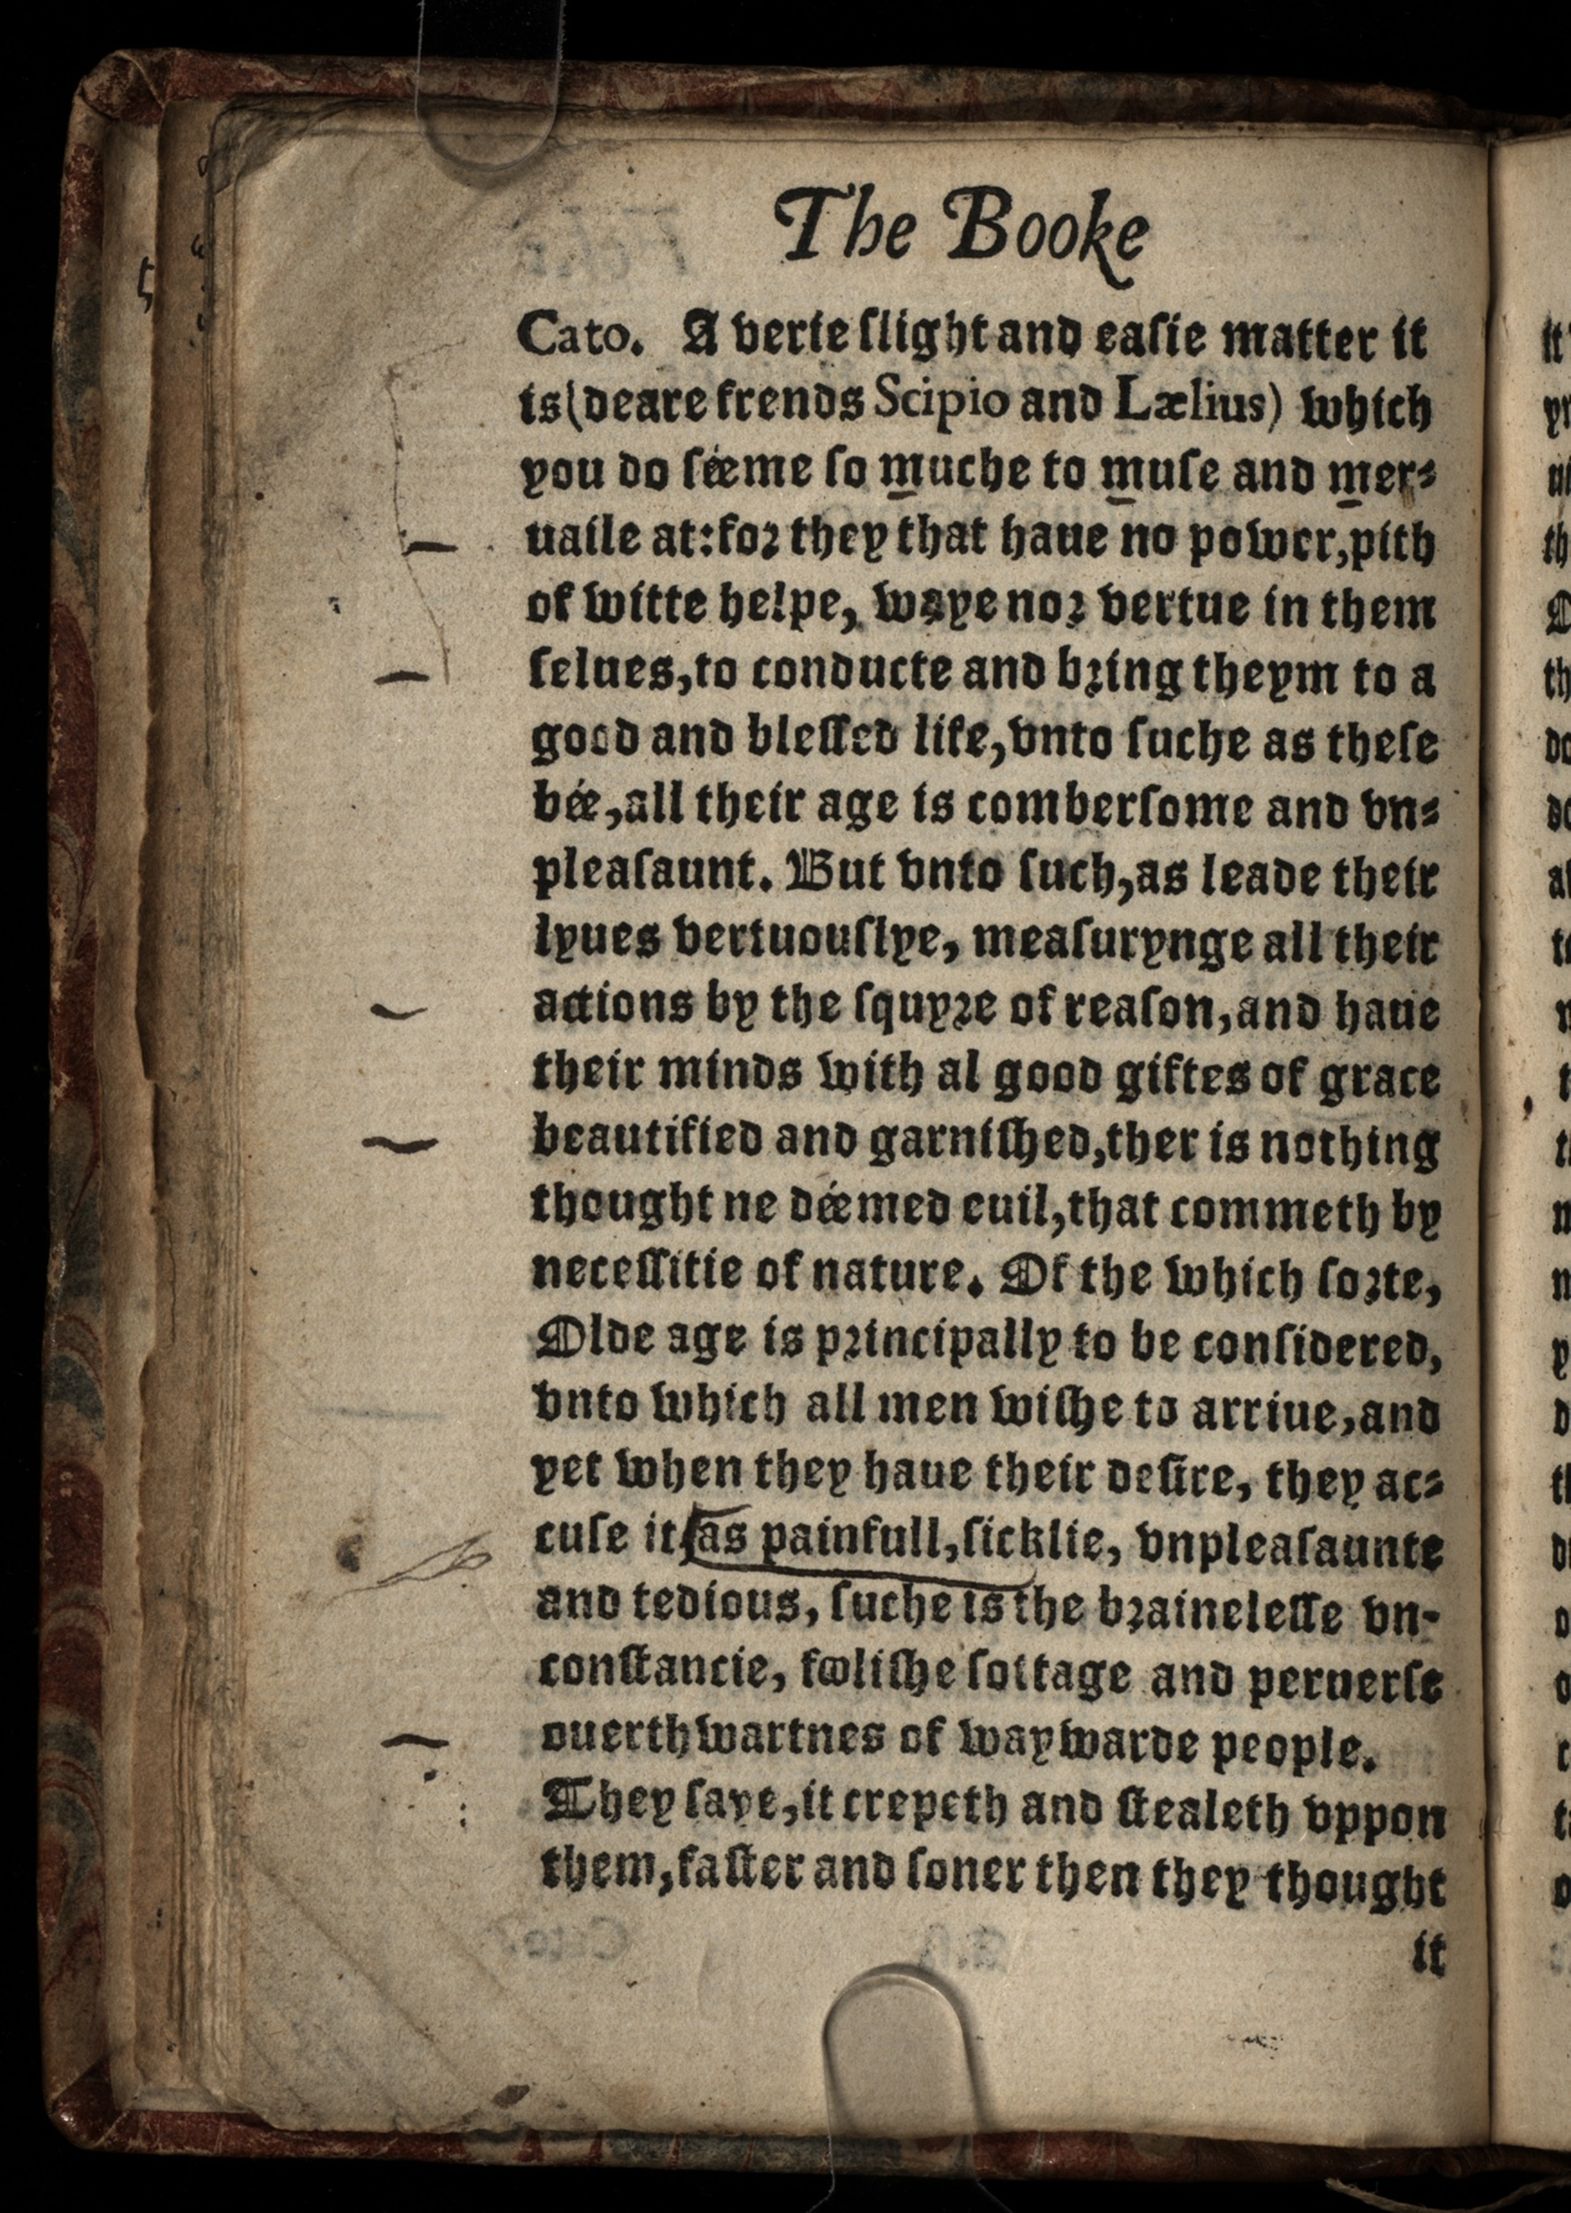 The Booke
Cato. A verie ſlight and eaſie matter it
is (deare frends Scipio and Lælius) which
you do ſéeme ſo muche to muſe and mer-
uaile at: for they that haue no power, pith
of witte helpe, waye nor vertue in them
ſelues, to conducte and bring theym to a
good and bleſſed life, vnto ſuche as theſe
bée, all their age is comberſome and vn-
pleaſaunt. But vnto ſuch, as leade their
lyues vertuouſlye, meaſurynge all their
actions by the ſquyre of reaſon, and haue
their minds with al good giftes of grace
beautified and garniſhed, ther is nothing
thought ne déemed euil, that commeth by
neceſſitie of nature. Of the which ſorte,
Olde age is principally to be conſidered,
vnto which all men wiſhe to arriue, and
yet when they haue their deſire, they ac-
cuſe it as painfull, ſicklie, vnpleaſaunte
and tedious, ſuche is the braineleſſe vn-
conſtancie, fooliſhe ſottage and peruerſe
ouerthwartnes of waywarde people.
They ſaye, it crepeth and ſtealeth vppon
them, faſter and ſoner then they thought
it